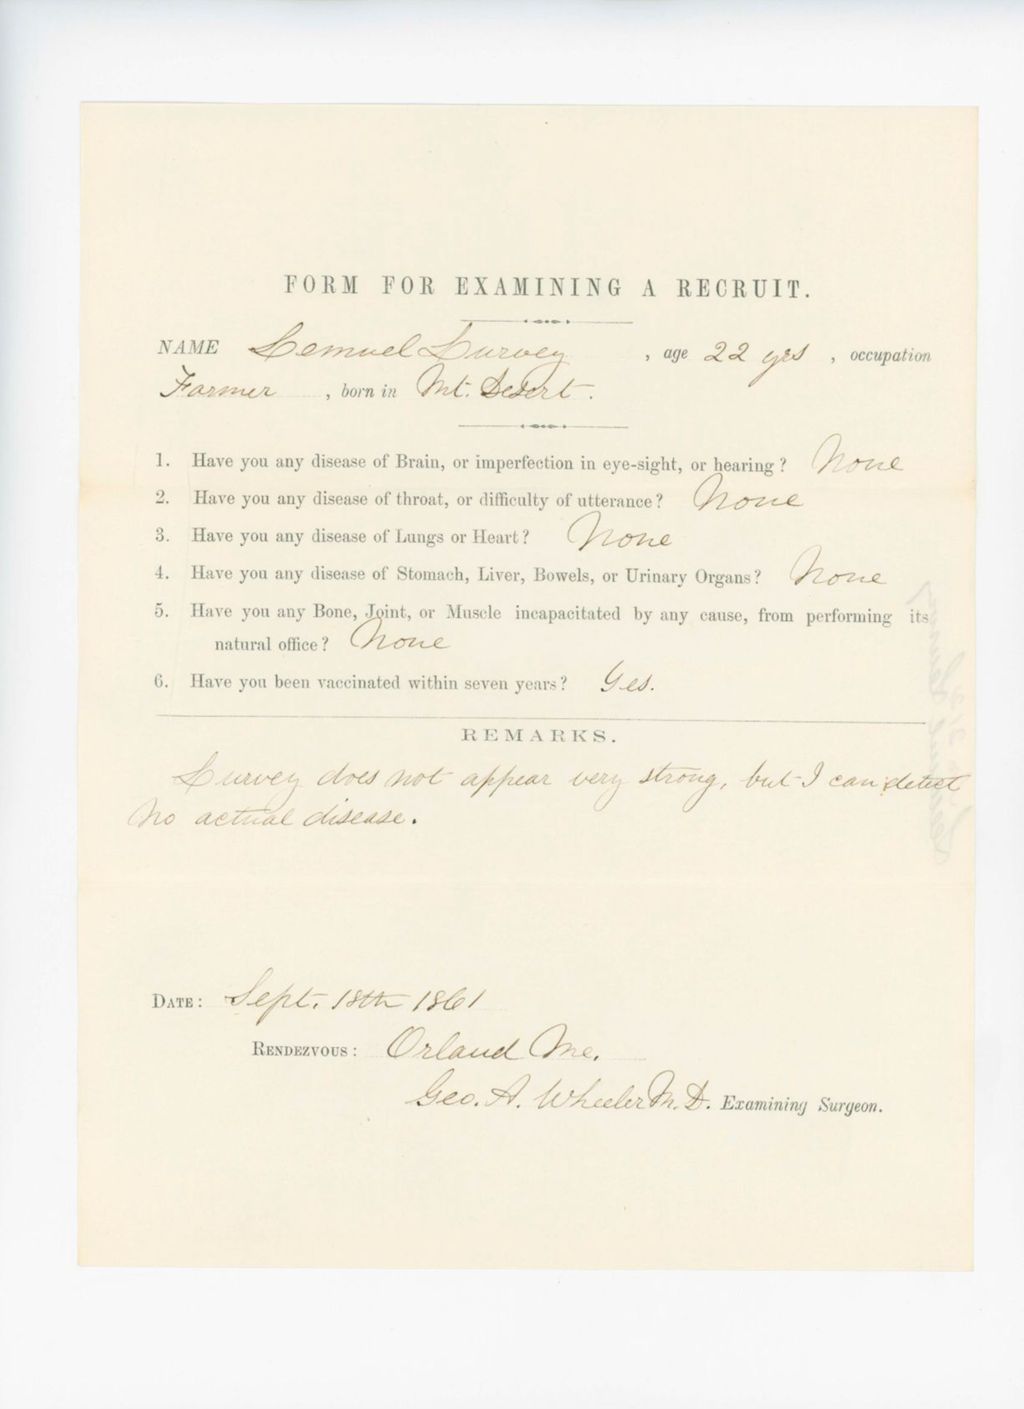 FORM FOR EXAMINING A RECRUIT.
NAME Lemuel Lurvey , age 22 yrs , occupation
Farmer , born in Mt. Desert .
1. Have you any disease of Brain, or imperfection in eye-sight, or hearing? None
2. Have you any disease of throat, or difficulty of utterance? None
3. Have you any disease of Lungs or Heart? None
4. Have you any disease of Stomach, Liver, Bowels, or Urinary Organs? None
5. Have you any Bone, Joint, or Muscle incapacitated by any cause, from performing its
natural office? None
6. Have you been vaccinated within seven years? Yes.
REMARKS.
Lurvey does not appear very strong, but I can detect
no actual disease.
DATE: Sept. 18th 1861
RENDEZVOUS: Orland Me.
Geo. A. Wheeler M.D. Examining Surgeon.